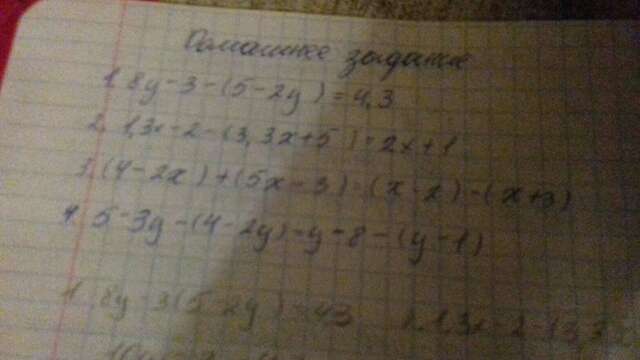 Домашнее задание
1. 8y-3-(5-2y)=4,3
2. 1,3x-2-(3,3x+5)=2x+1
3. (4-2x)+(5x-3)=(x-x)-(x+3)
4. 5-3y-(4-2y)=y-8-(y-1)
1. 8y-3(5-2y)=43 1,3x-2-(3,3